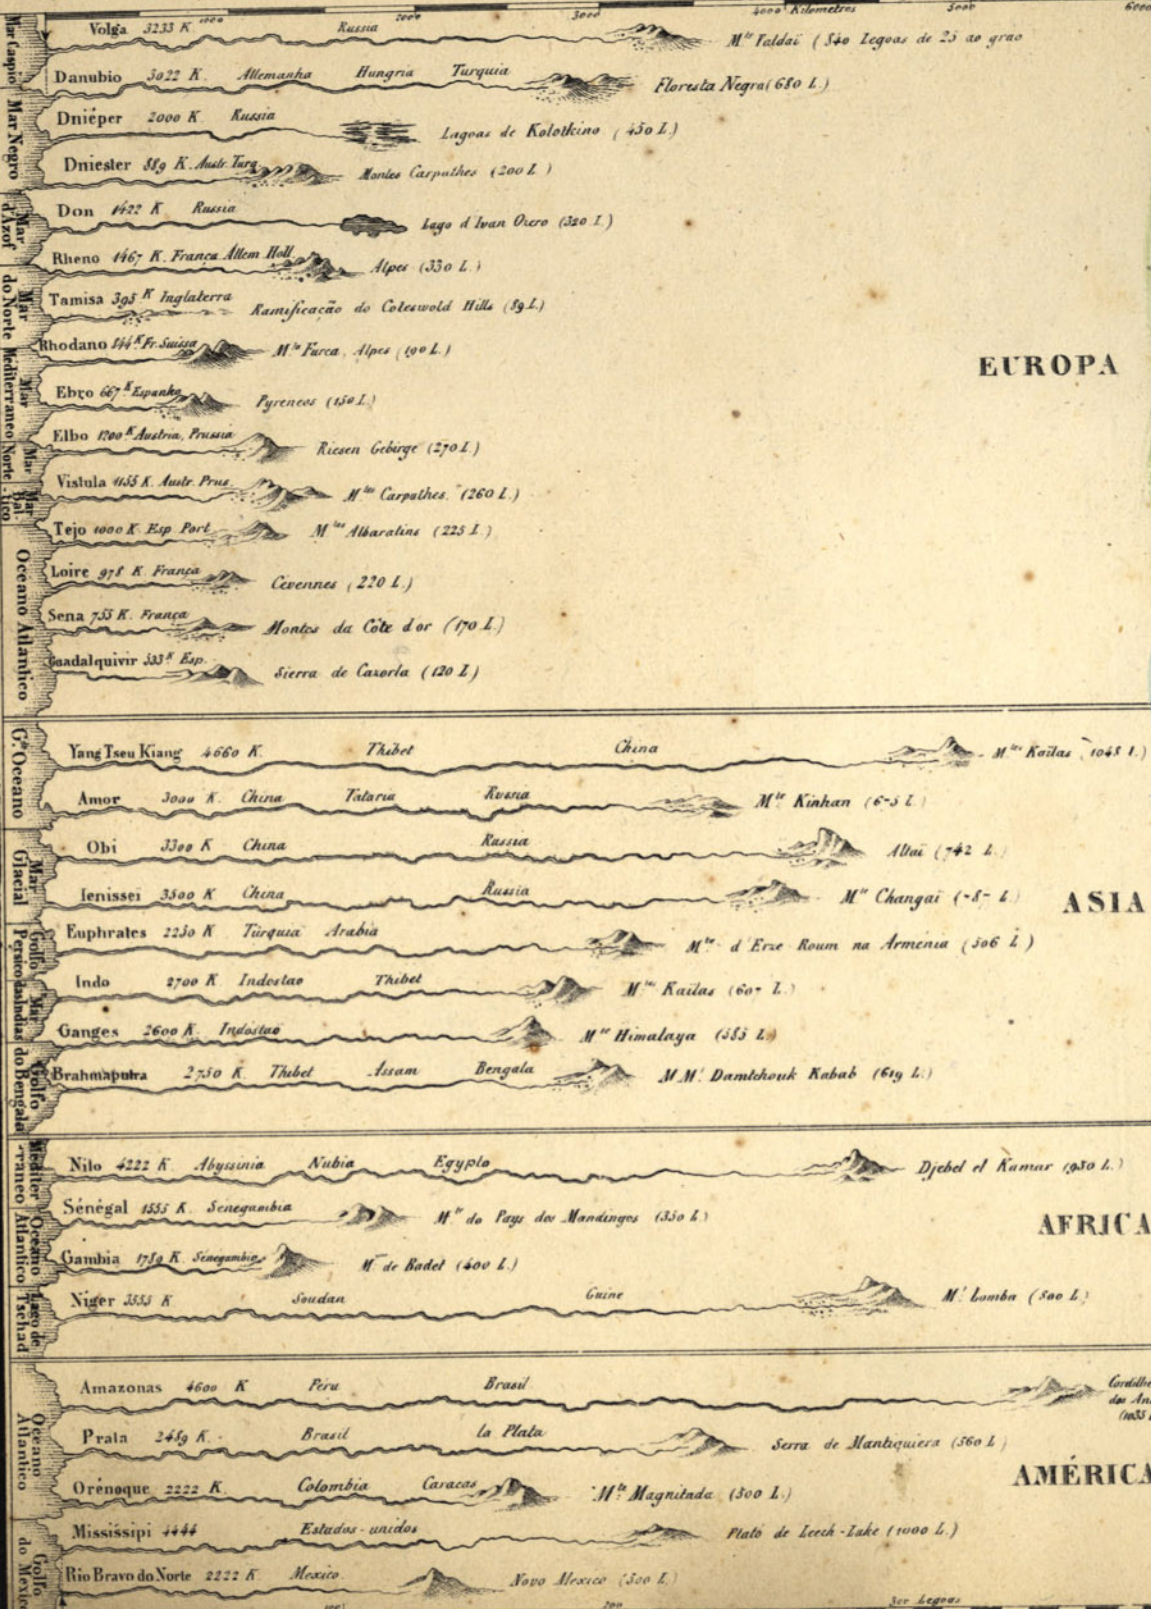 1000 2000 3000 4000 Kilometres 5000 6000
Mar Caspio
Volga 3233 K Russia Mts Valdaï (840 Legoas de 25 ao grao
Mar Negro
Danubio 3022 K. Allemanha Hungria Turquia Floresta Negra (680 L.)
Dniéper 2000 K. Russia Lagoas de Kolotkino (450 L)
Dniester 889 K. Austr. Turq. Montes Carpathes (200 L)
Mar d'Azof
Don 1422 K Russia Lago d Ivan Ozero (320 L.)
Mar do Norte
Rheno 1467 K. França Allem. Holl. Alpes (330 L.)
Tamisa 395 K Inglaterra Ramificação do Coteswold Hills (89 L.)
Mar Mediterraneo
Rhodano 844 K Fr. Suissa Mte Furca, Alpes (190 L.)
Ebro 667 K Espanha Pyreneos (150 L.)
Mar Norte
Elbo 1200 K Austria, Prussia Riesen Gebirge (270 L.)
Mar Bal-tico
Vistula 1155 K. Austr. Prus. Mtes Carpathes. (260 L.)
Oceano Atlantico
Tejo 1000 K. Esp. Port. Mtes Albaratins (225 L.)
Loire 978 K. França Cevennes (220 L.)
Sena 755 K. França Montes da Côte d'or (170 L.)
Guadalquivir 533 K Esp. Sierra de Cazorla (120 L)
EUROPA
Gde Oceano
Yang Tseu Kiang 4660 K. Thibet China Mtes Kaïlas (1048 L.)
Amor 3000 K. China Tataria Russia Mte Kinhan (675 L.)
Mar Glacial
Obi 3300 K China Russia Altaï (742 L.)
Ienisseï 3500 K China Russia Mte Changaï (787 L.)
Golfo Persico
Euphrates 2250 K Turquia Arabia Mte d'Erze Roum na Armenia (506 L)
Mar das Indias
Indo 2700 K Indostao Thibet Mtes Kaïlas (607 L.)
Golfo do Bengala
Ganges 2600 K. Indostao Mte Himalaya (585 L.)
Brahmaputra 2750 K. Thibet Assam Bengala M M. Damtchouk Kabab (619 L.)
ASIA
Mediter-raneo
Nilo 4222 K. Abyssinia Nubia Egypto Djebel el Kamar (950 L.)
Oceano Atlantico
Sénégal 1555 K. Senegambia Mte do Pays des Mandingos (350 L.)
Gambia 1789 K. Senegambia M. de Badet (400 L.)
Lago de Tschad
Niger 3555 K Soudan Guine Mt Lomba (800 L.)
AFRICA
Oceano Atlantico
Amazonas 4600 K Peru Brasil (1035
Prata 2489 K. Brasil la Plata Serra de Mantiquiera (560 L.)
Orénoque 2222 K. Colombia Caracas Mte Magnitada (500 L.)
Golfo do Mexico
Mississipi 4444 Estados-unidos Plató de Leech-Lake (1000 L.)
Rio Bravo do Norte 2222 K Mexico Novo Mexico (500 L.)
AMÉRICA
100 200 300 Legoas